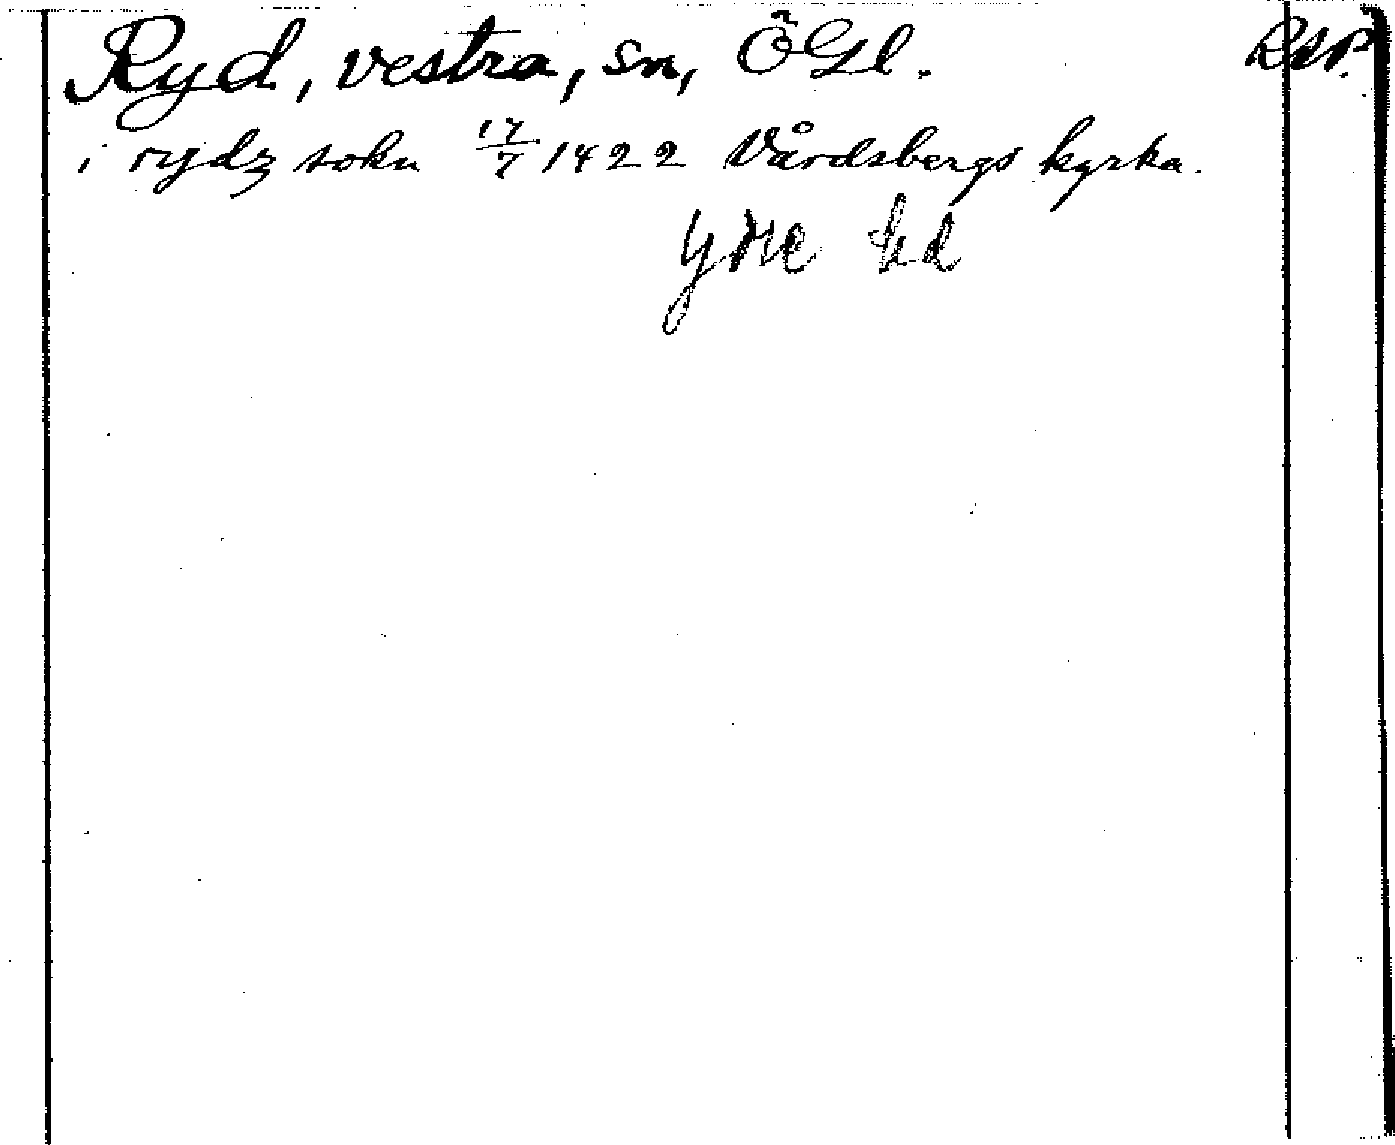 Ryd, vestra, sn, ÖGl. RAP.
i rydz sokn 17/7 1422 Vårdsbergs kyrka.
Ydre hd